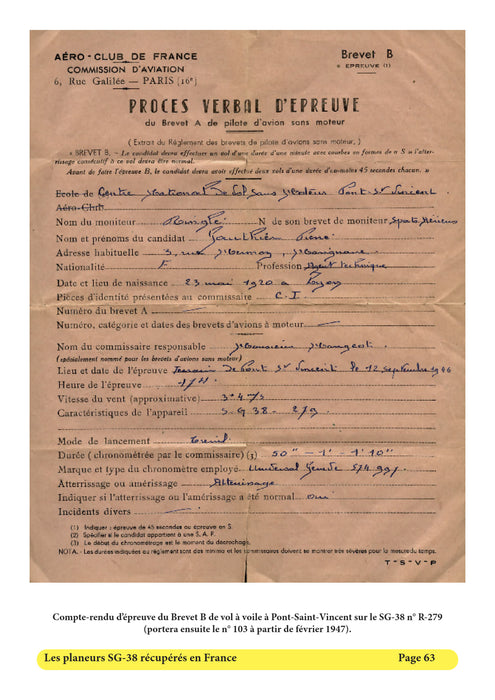 AÉRO-CLUB DE FRANCE
COMMISSION D'AVIATION
6, Rue Galilée — PARIS (16e)
Brevet B
* EPREUVE (1)
PROCES VERBAL D'EPREUVE
du Brevet A de pilote d'avion sans moteur
( Extrait du Réglement des brevets de pilote d'avions sans moteur. )
« BREVET B. - Le candidat devra effectuer un vol d'une durée d'une minute avec courbes en formes de « S » l'atter-
rissage consécutif à ce vol devra être normal.
Avant de faire l'épreuve B, le candidat devra avoir effectué deux vols d'une durée d'au-moins 45 secondes chacun. »
Ecole de Centre National De Vol Sans Moteur Pont-St Vincent
Aéro-Club
Nom du moniteur N de son brevet de moniteur Sports Aériens
Nom et prénoms du candidat
Adresse habituelle 3, rue
Nationalité F Profession Agent technique
Date et lieu de naissance 23 mai 1920 à Lyon
Pièces d'identité présentées au commissaire C.I
Numéro du brevet A —
Numéro, catégorie et dates des brevets d'avions à moteur —
Nom du commissaire responsable Monsieur Mangeot
(spécialement nommé pour les brevets d'avions sans moteur)
Lieu et date de l'épreuve Terrain De Pont St Vincent le 12 septembre 1946
Heure de l'épreuve 17H
Vitesse du vent (approximative)
Caractéristiques de l'appareil S.G 38 - 279
Mode de lancement treuil
Durée ( chronométrée par le commissaire) (3) 50" - 1' - 1'10"
Marque et type du chronomètre employé Universal Genève 574 991
Atterrissage ou amérissage Atterrissage
Indiquer si l'atterrissage ou l'amérissage a été normal oui
Incidents divers —
(1) Indiquer : épreuve de 45 secondes ou épreuve en S.
(2) Spécifier si le candidat appartient à une S. A. P.
(3) Le début du chronométrage est le moment du décrochage.
NOTA. - Les durées indiquées au règlement sont des minima et les commissaires doivent se montrer très sévères pour la mesure du temps.
T-S-V-P
Compte-rendu d'épreuve du Brevet B de vol à voile à Pont-Saint-Vincent sur le SG-38 n° R-279
(portera ensuite le n° 103 à partir de février 1947).
Les planeurs SG-38 récupérés en France Page 63